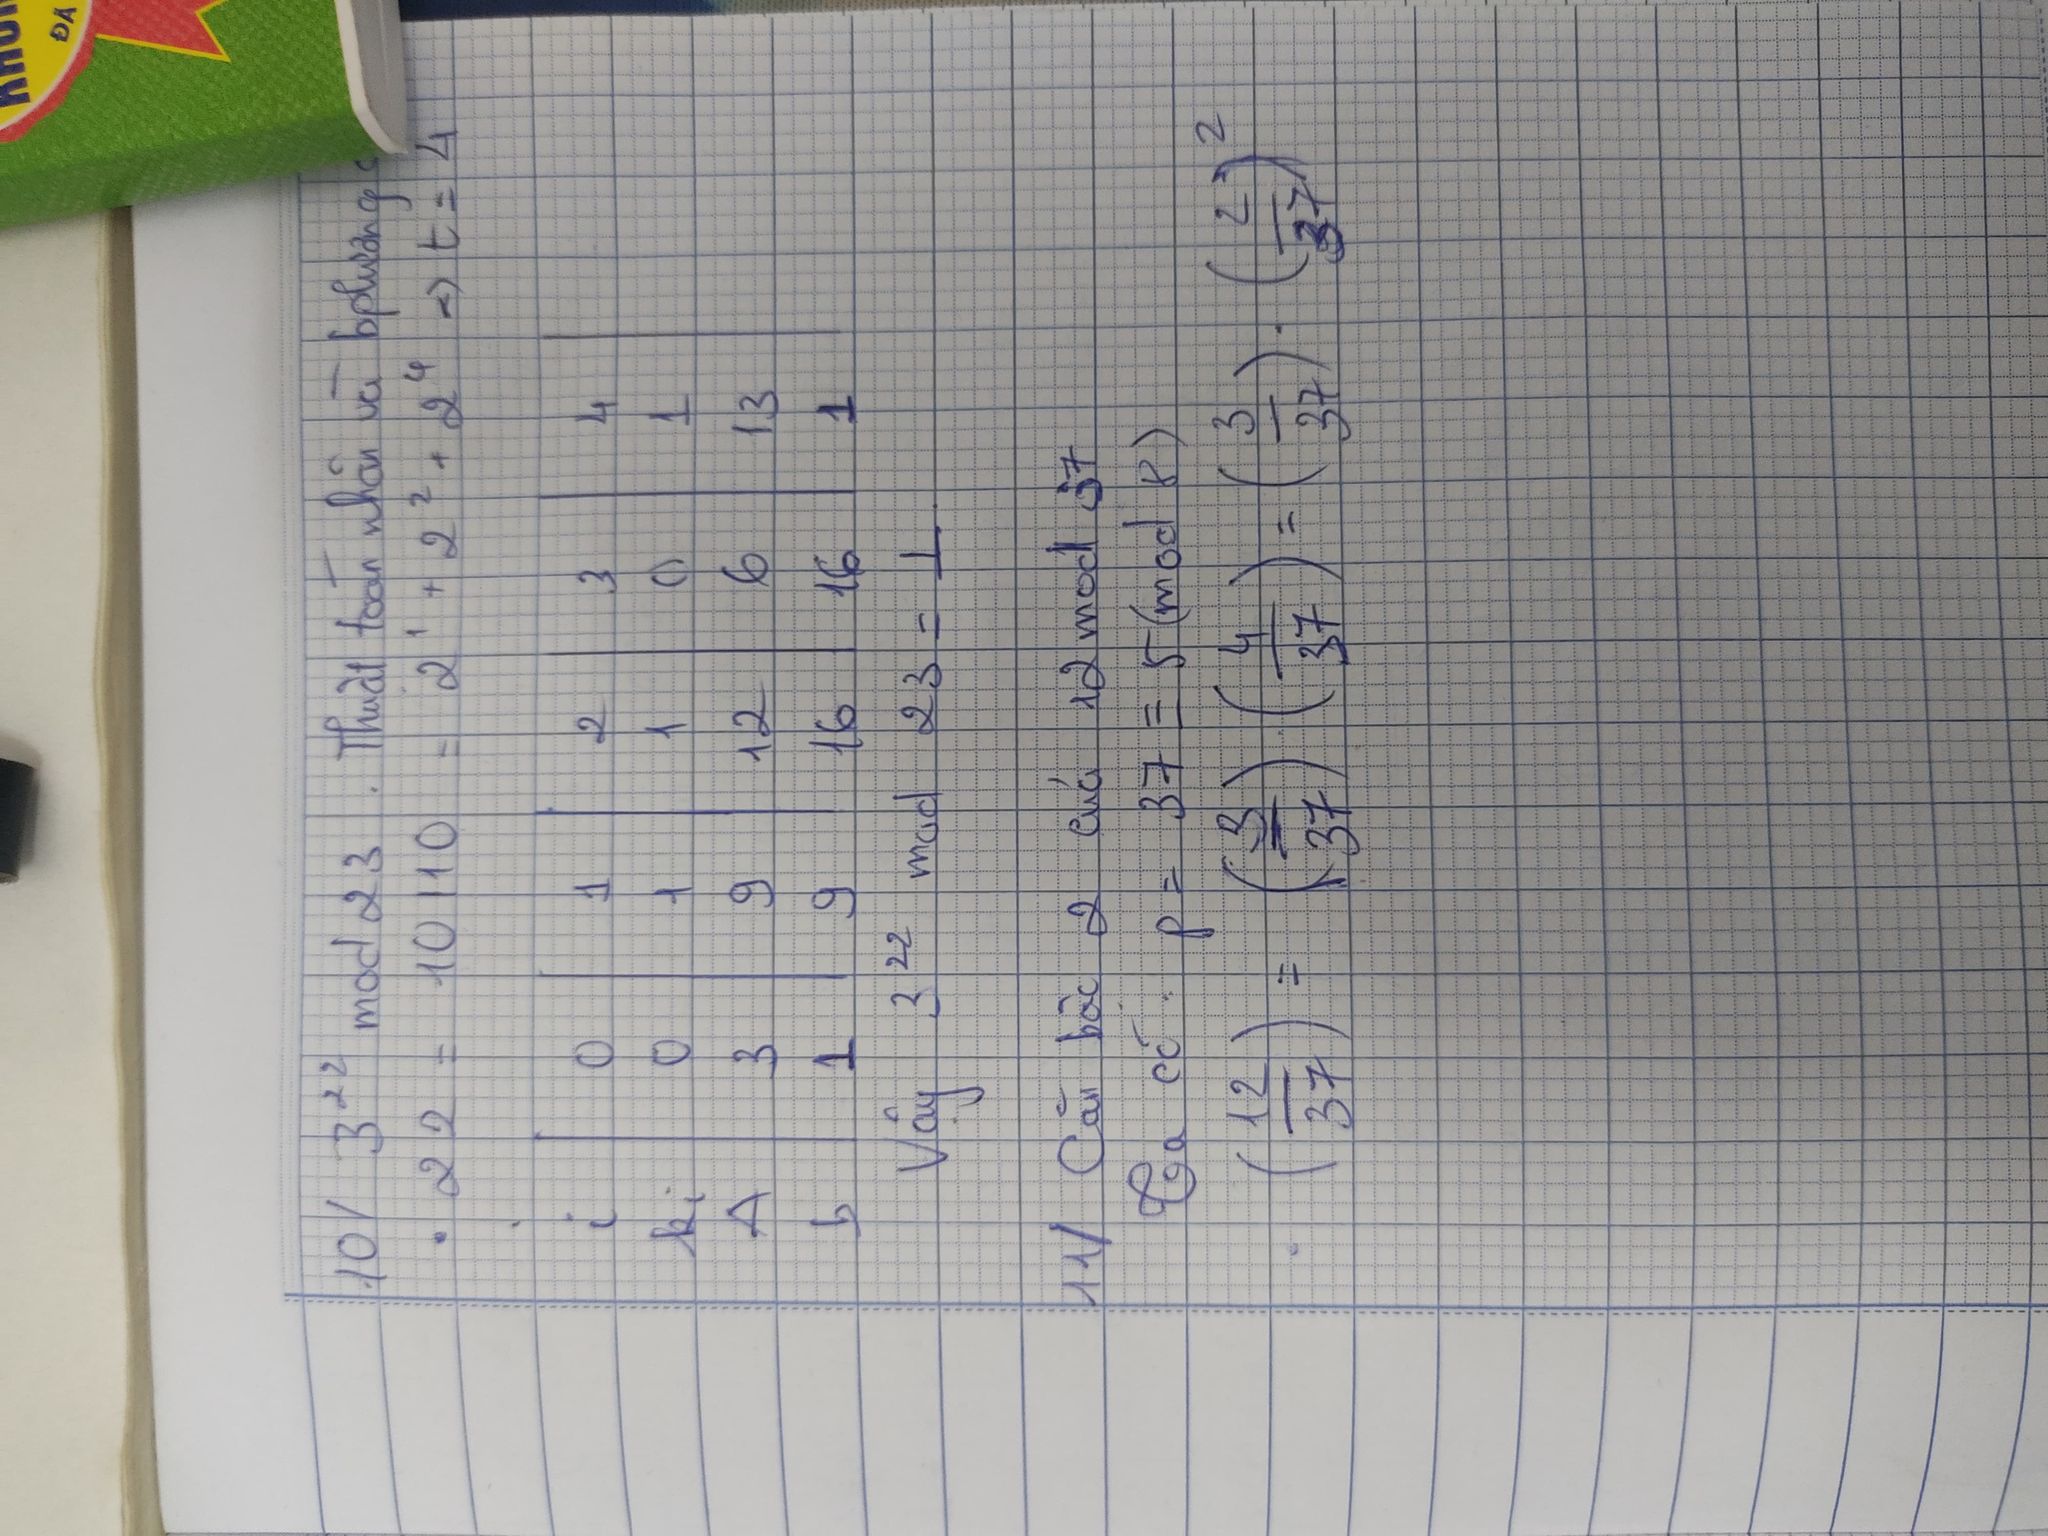 10/ 3²² mod 23. Thuật toán nhân và bphương
• 22 = 10110 = 2¹ + 2² + 2⁴ => t = 4
i | 0 | 1 | 2 | 3 | 4
ki | 0 | 1 | 1 | 0 | 1
A | 3 | 9 | 12 | 6 | 13
b | 1 | 9 | 16 | 16 | 1
Vậy 3²² mod 23 = 1
11/ Căn bậc 2 của 12 mod 37
Ta có: p = 37 ≡ 5 (mod 8)
• (12/37) = (3/37) (4/37) = (3/37) . (2/37)²
ĐÁ